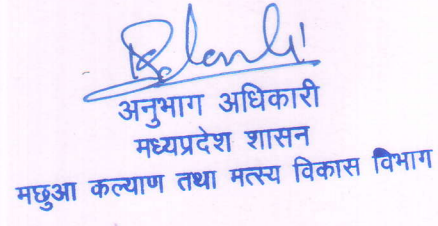 अनुभाग अधिकारी
मध्यप्रदेश शासन
मछुआ कल्याण तथा मत्स्य विकास विभाग